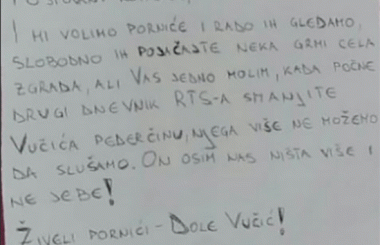 I MI VOLIMO PORNIĆE I RADO IH GLEDAMO,
SLOBODNO IH POJAČAJTE NEKA GRMI CELA
ZGRADA, ALI VAS JEDNO MOLIM, KADA POČNE
DRUGI DNEVNIK RTS-A SMANJITE
VUČIĆA PEDERČINU, NJEGA VIŠE NE MOŽEMO
DA SLUŠAMO. ON OSIM NAS NIŠTA VIŠE I
NE JEBE!
ŽIVELI PORNIĆI - DOLE VUČIĆ!